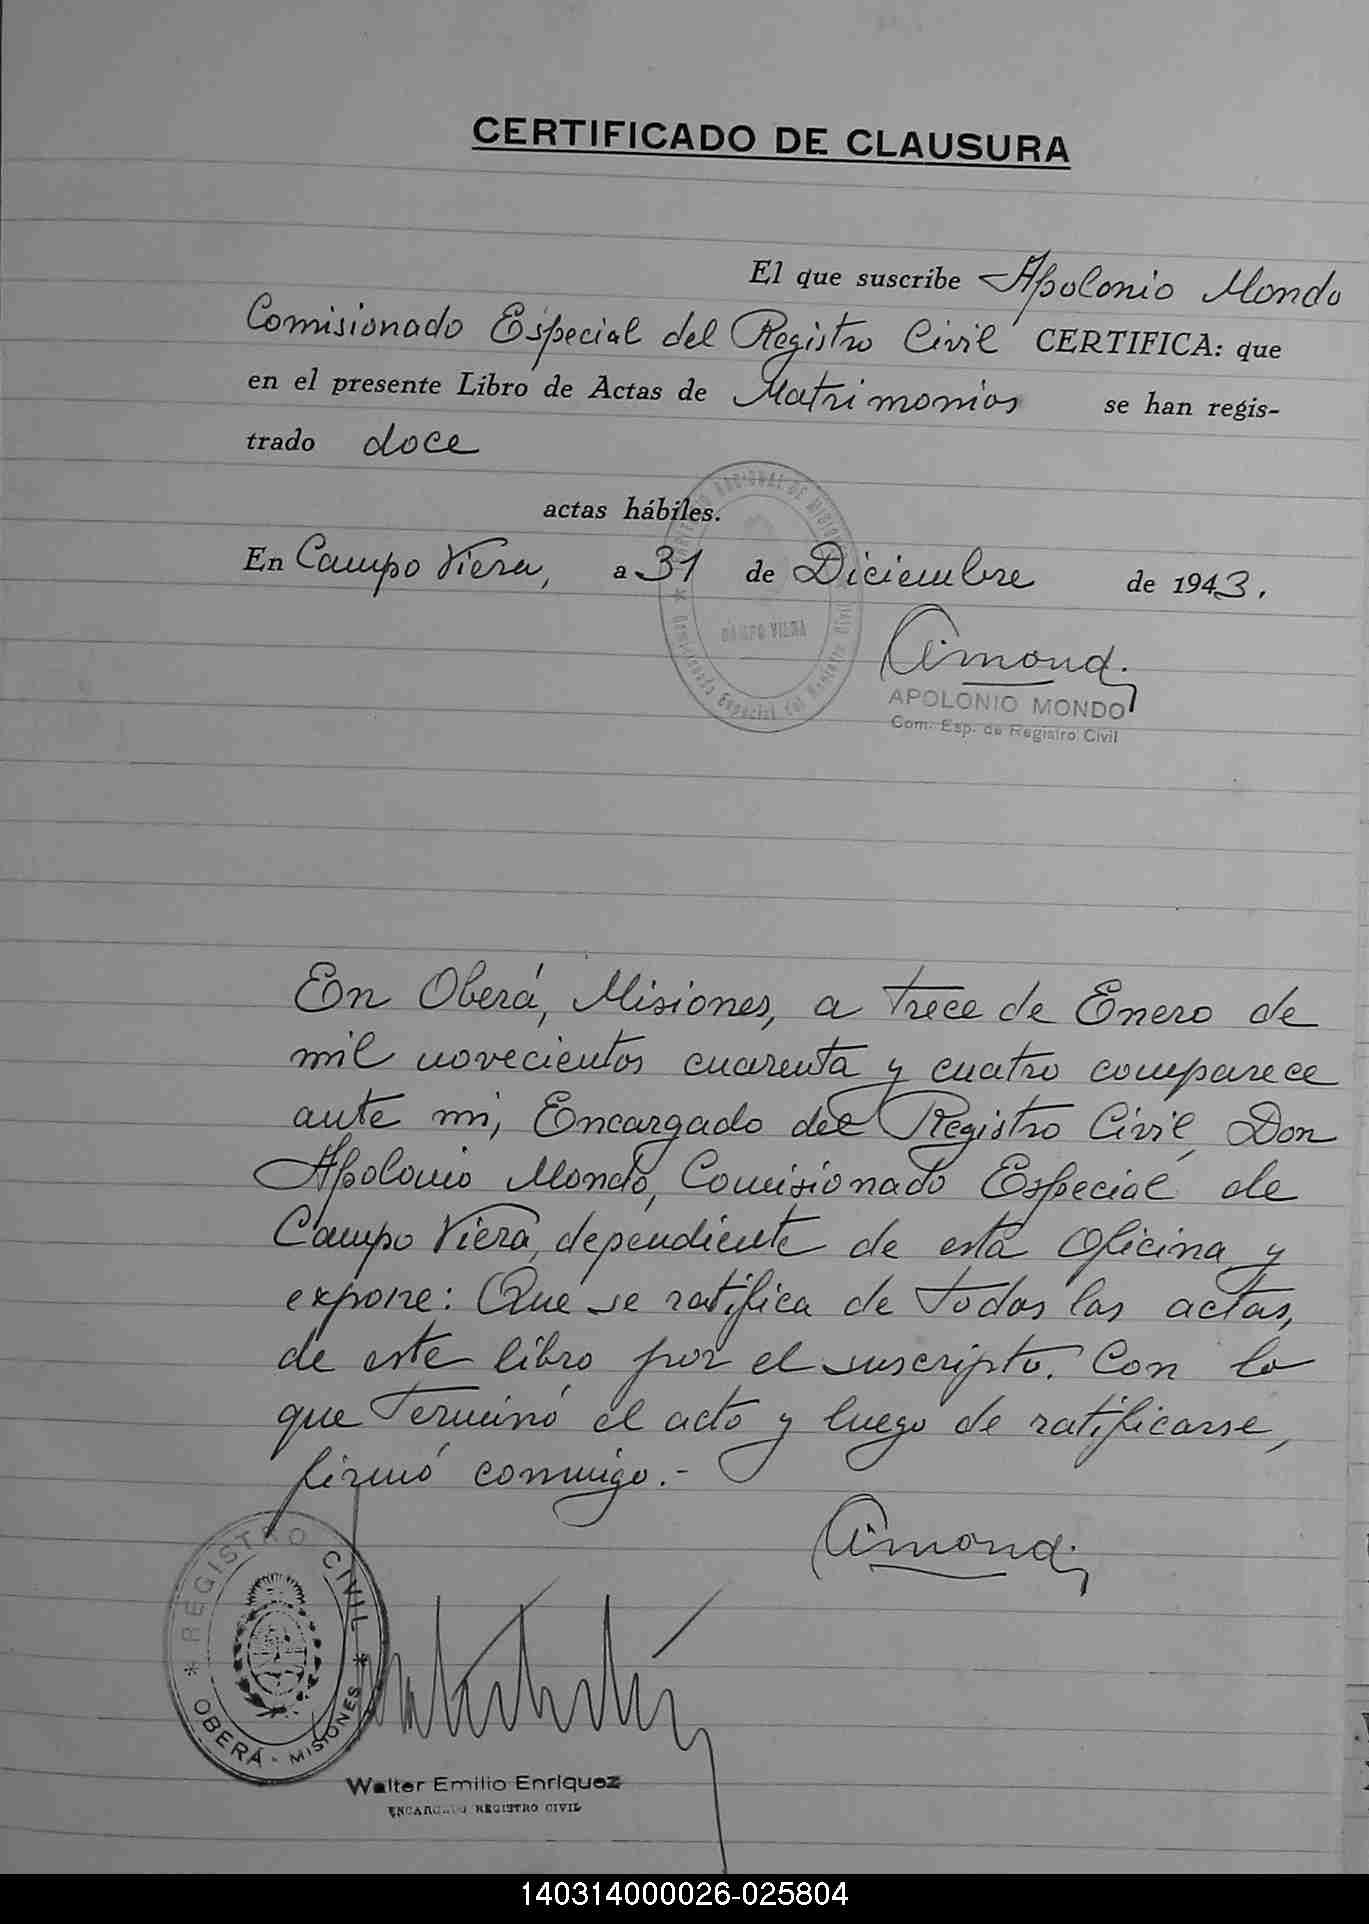 CERTIFICADO DE CLAUSURA
El que suscribe Apolonio Mondo
Comisionado Especial del Registro Civil CERTIFICA: que
en el presente Libro de Actas de Matrimonios se han regis-
trado doce
actas hábiles.
En Campo Viera, a 31 de Diciembre de 1943.
CAMPO VIERA
Comisionado Especial del Registro Civil
APOLONIO MONDO
Com. Esp. de Registro Civil
En Oberá, Misiones, a trece de Enero de
mil novecientos cuarenta y cuatro comparece
ante mi, Encargado del Registro Civil, Don
Apolonio Mondo, Comisionado Especial de
Campo Viera, dependiente de esta Oficina y
expone: Que se ratifica de todas las actas,
de este libro por el suscripto. Con lo
que terminó el acto y luego de ratificarse,
firmó conmigo.-
REGISTRO CIVIL
OBERÁ - MISIONES
Walter Emilio Enriquez
ENCARGADO REGISTRO CIVIL
140314000026-025804